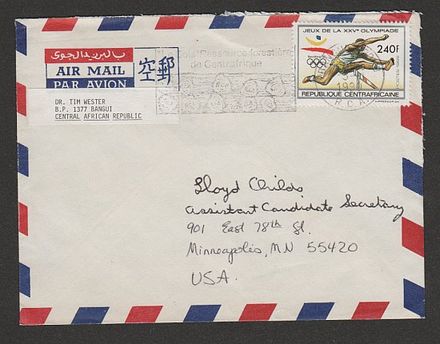 بالبريد الجوى
AIR MAIL
PAR AVION
空郵
DR. TIM WESTER
B.P. 1377 BANGUI
CENTRAL AFRICAN REPUBLIC
Ressource forestière
de Centrafrique
JEUX DE LA XXVe OLYMPIADE
240F
REPUBLIQUE CENTRAFRICAINE
Lloyd Childs
Assistant Candidate Secretary
901 East 78th St.
Minneapolis, MN 55420
USA.